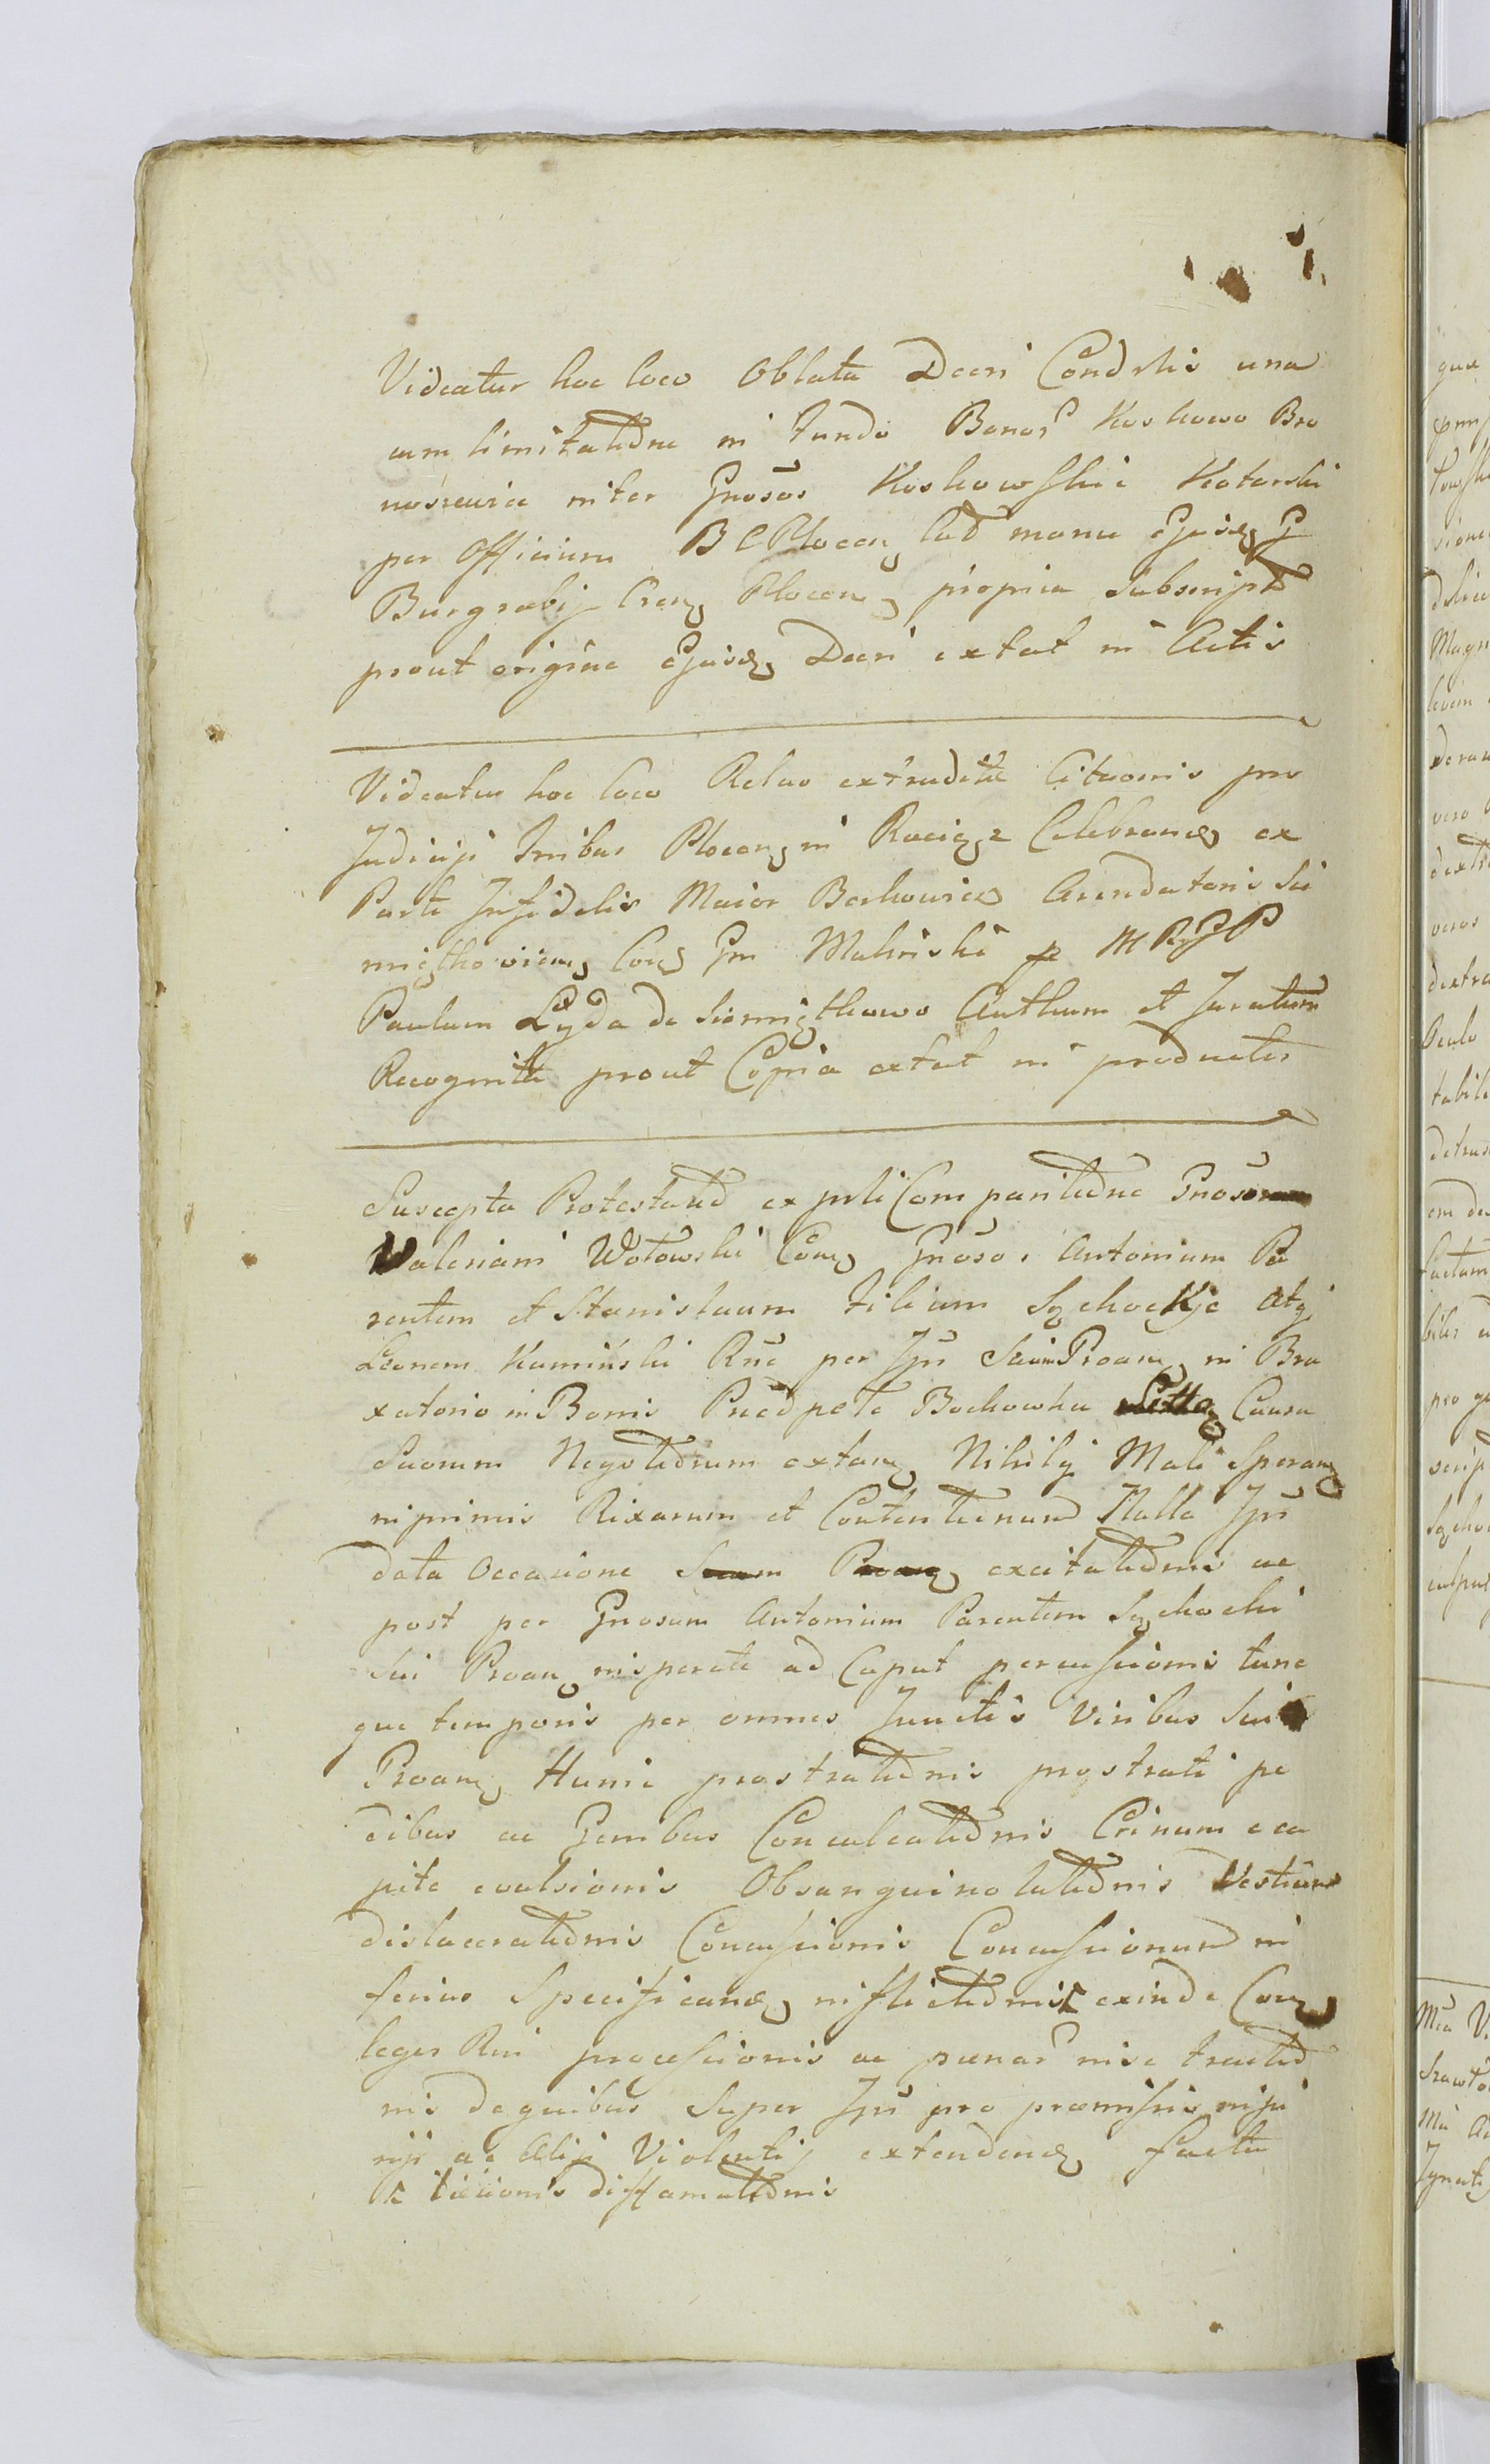 Videatur hoc loco Oblata Decri Condrlis una
cum limitatione in fundo Bonor Koskowo Bro
noszewice inter Gnosos Koskowskie Kotarski
per Officium B C Plocen lad manu Ejusq G
Burgrabij Cren Plocen propria Subscript
prout origine Ejusq Decri extat in Actis
Videatur hoc loco Relao extraditae Citaonis pro
Judicijs Tribus Plocen in Raciąz Celebrand ex
Parte Infidelis Maior Berkowicz Arendatoris Sie
miątkovien Con Gm Malinski p M R G P
Paulum Łyda de Siemiątkowo Authum et Juratum
Recognita prout Copia extat in productis
Suscepta Protestatio ex prli Comparitione Gnosorum
Valeriani Wołowski Con Gnosos Antonium Pa
rentem et Stanislaum Filium Sąchockje Atq
Leonem Kamiński Rne per Ipn Suum Proan in Bra
xatorio in Bonis Praedpete Bochowka Causa
Suorum Negotiorum extan Nihilq Mali Speran
inprimis Rixarum et Contentionum Nulla Ipsi
data Occasione excitationis ac
post per Gnosum Antonium Parentem Sąchocki
Sui Proan insperate ad Caput percussionis tunc
que temporis per omnes Junctis Viribus Sui
Proan Humi prostrationis prostrati pe
dibus ac Genibus Conculcationis Crinum e ca
pite evulsionis Obsanguinolationis Vestium
dislacerationis Concussionis Concussionum in
ferius Specificand inflictionis exinde Con
leges Rni processionis ac poenar inse tractio
nis de quibus Super Ipn pro praemissis inju
rijs ac Alijs Violentijs extendend facta
diffamationis